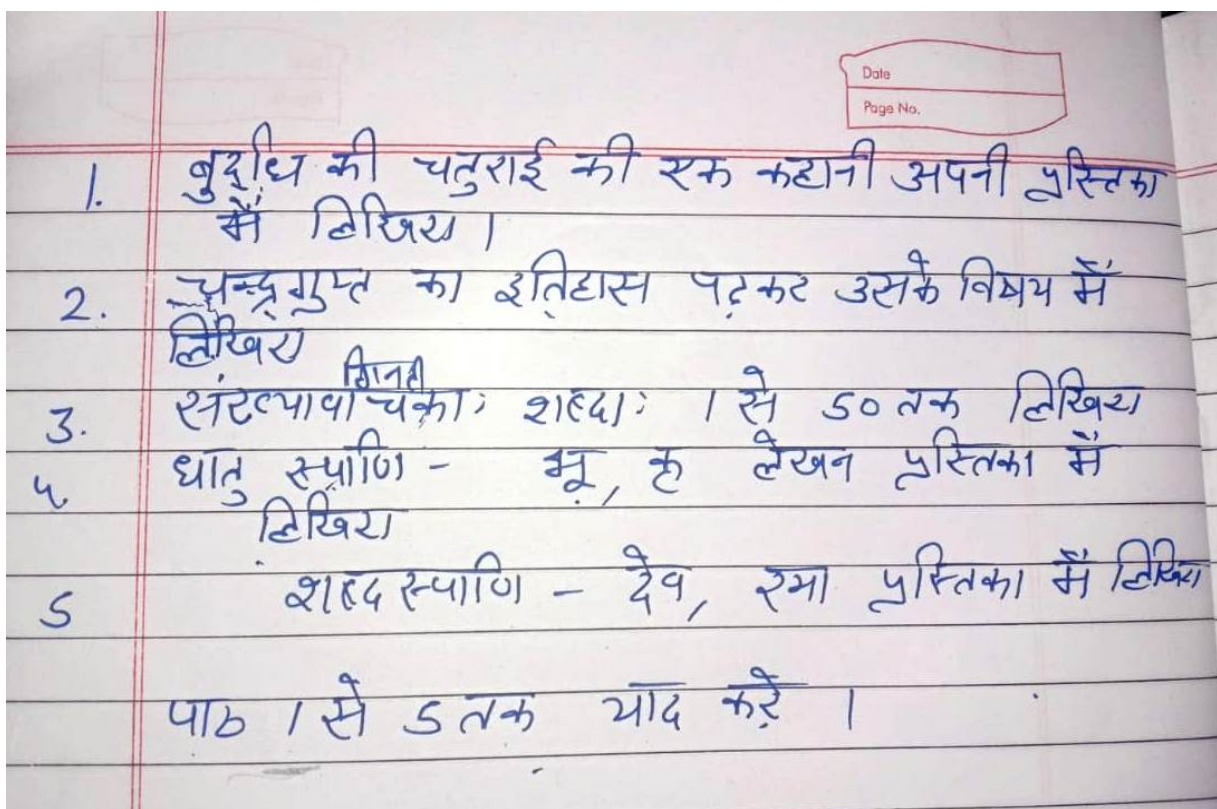 Date
Page No.
1. बुद्धि की चतुराई की एक कहानी अपनी पुस्तिका
में लिखिए ।
2. चन्द्रगुप्त का इतिहास पढ़कर उसके विषय में
लिखिए
गिनती
3. संख्यावाचका: शब्दा: 1 से 50 तक लिखिए
4. धातु रूपाणि - भू, कृ लेखन पुस्तिका में
लिखिए
5 शब्द रूपाणि - देव, रमा पुस्तिका में लिखिए
पाठ 1 से 5 तक याद करें ।